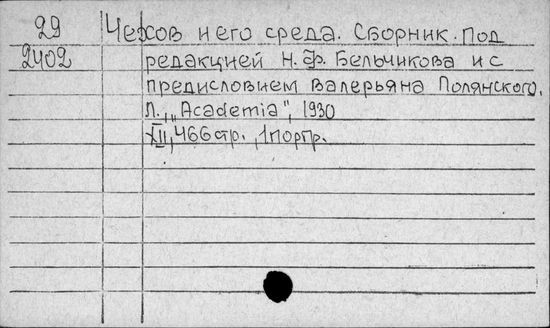 29 Чехов и его среда. Сборник. Под
2402 редакцией Н.Ф. Бельчикова и с
предисловием Валерьяна Полянского.
Л., „Academia", 1930
XII, 466 стр., 1 портр.